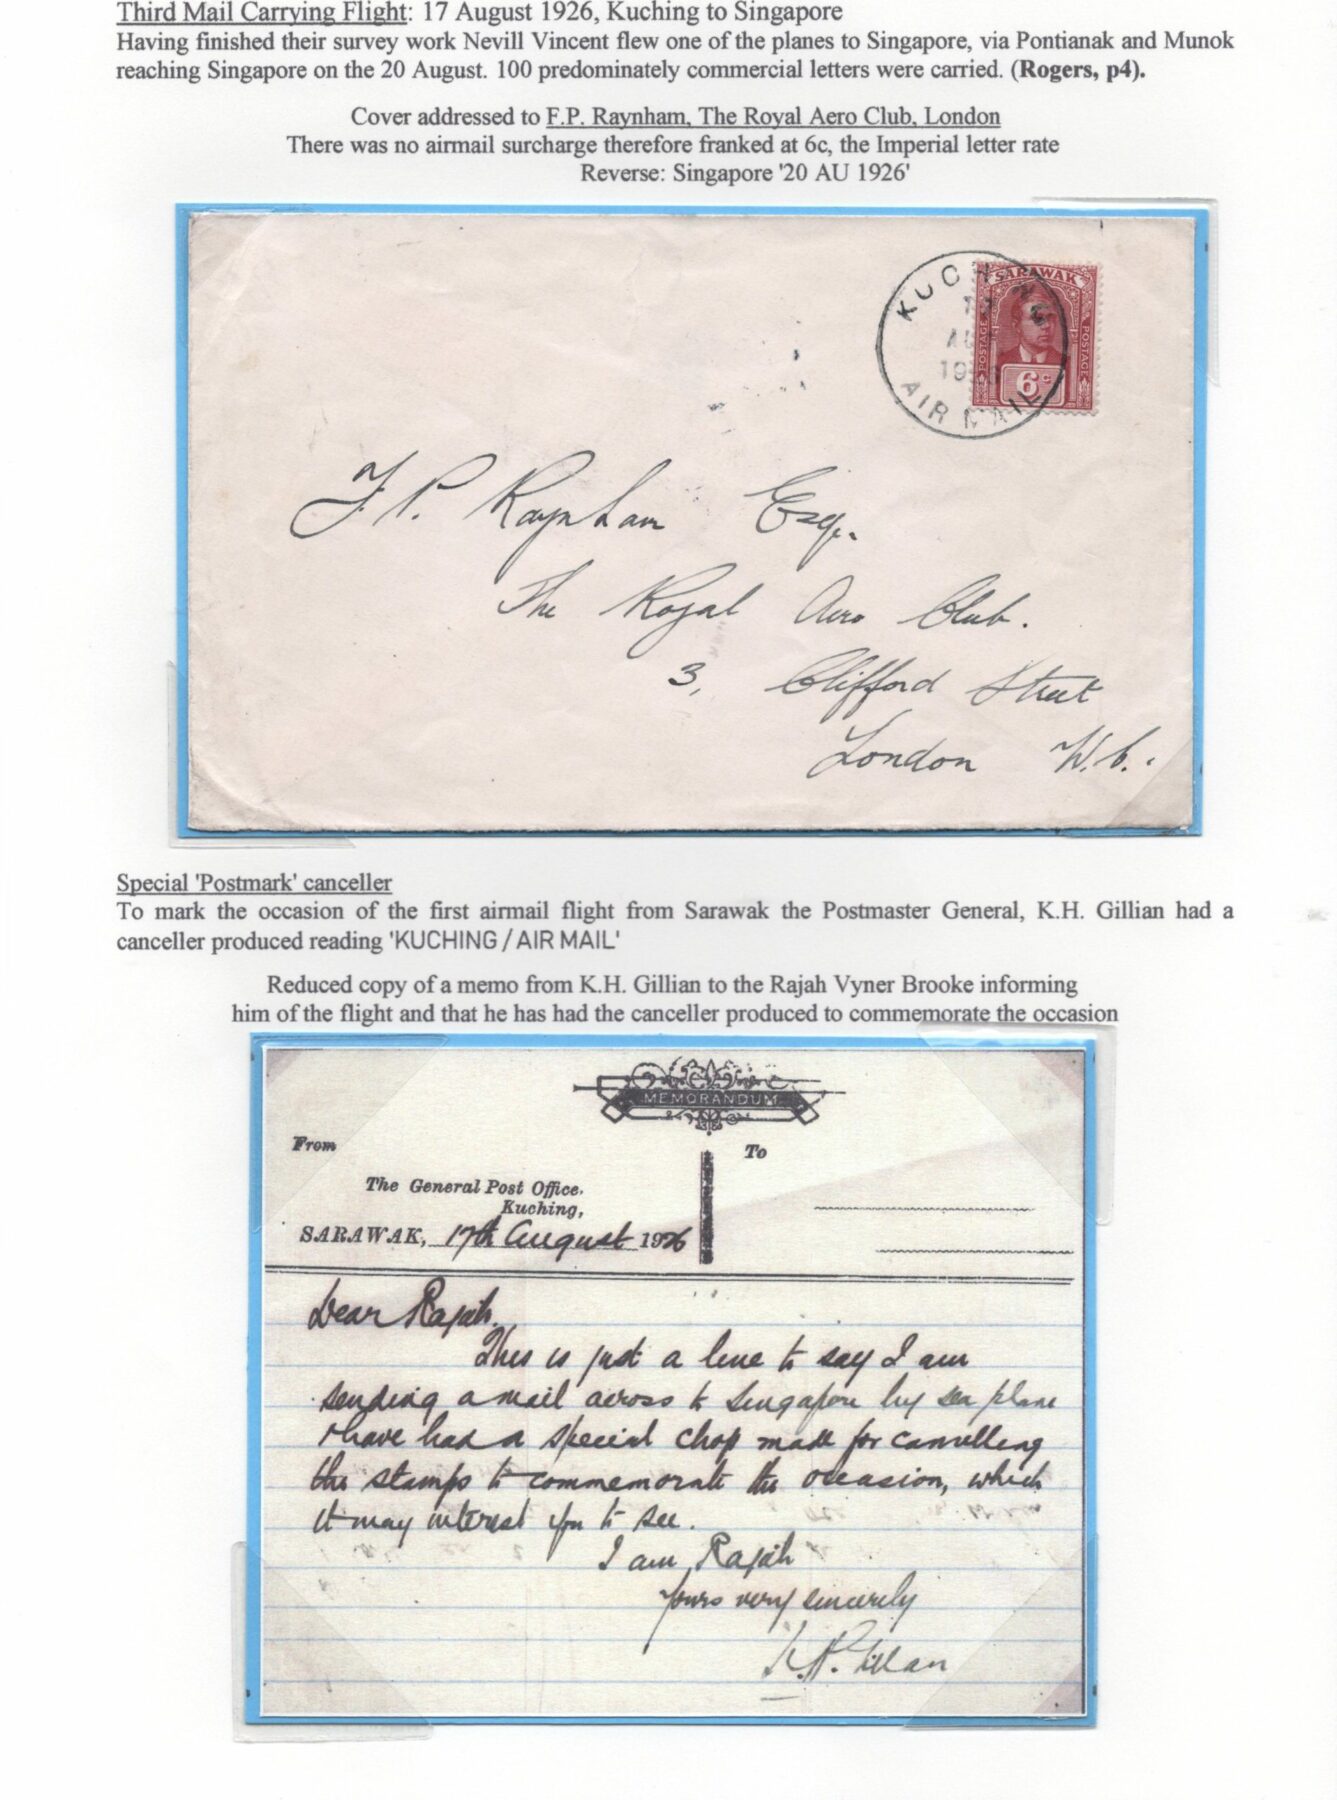 Third Mail Carrying Flight: 17 August 1926, Kuching to Singapore
Having finished their survey work Nevill Vincent flew one of the planes to Singapore, via Pontianak and Munok
reaching Singapore on the 20 August. 100 predominately commercial letters were carried. (Rogers, p4).
Cover addressed to F.P. Raynham, The Royal Aero Club, London
There was no airmail surcharge therefore franked at 6c, the Imperial letter rate
Reverse: Singapore '20 AU 1926'
KUCHING
AU
19
AIR MAIL
SARAWAK
POSTAGE
POSTAGE
6c
F. P. Raynham Esq.
The Royal Aero Club.
3, Clifford Street
London W.1.
Special 'Postmark' canceller
To mark the occasion of the first airmail flight from Sarawak the Postmaster General, K.H. Gillian had a
canceller produced reading 'KUCHING / AIR MAIL'
Reduced copy of a memo from K.H. Gillian to the Rajah Vyner Brooke informing
him of the flight and that he has had the canceller produced to commemorate the occasion
MEMORANDUM
From
To
The General Post Office.
Kuching,
SARAWAK, 17th August 1926
Dear Rajah.
This is just a line to say I am
sending a mail across to Singapore by sea plane
& have had a special chop made for cancelling
the stamps to commemorate the occasion, which
it may interest you to see.
I am Rajah
Yours very sincerely
K.H. Gillan